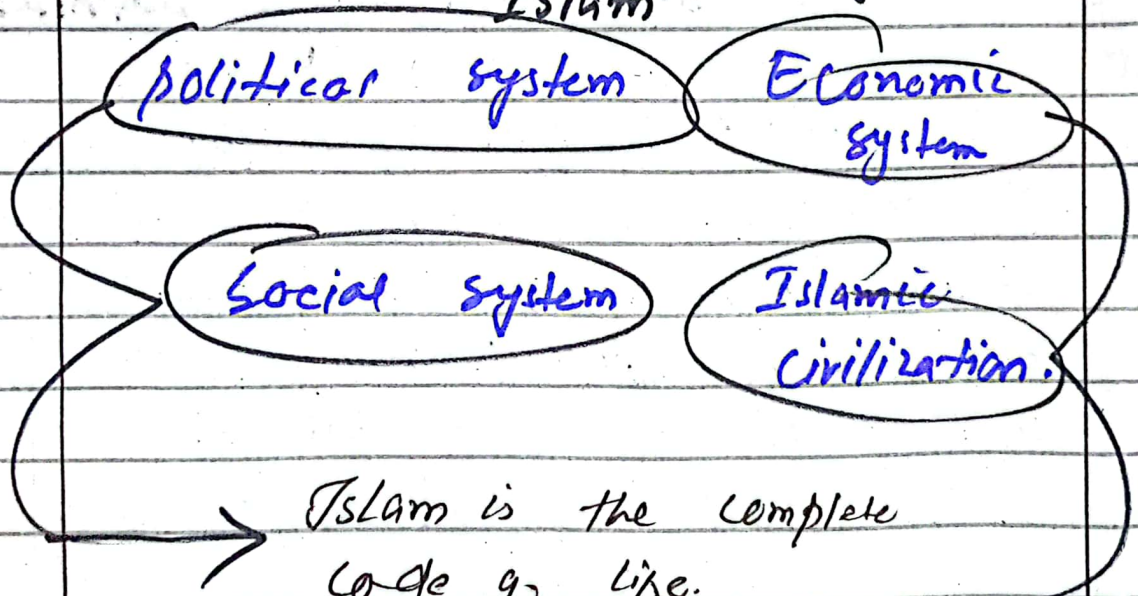 Islam
political system
Economic
system
Social system
Islamic
civilization.
Islam is the complete
code of life.